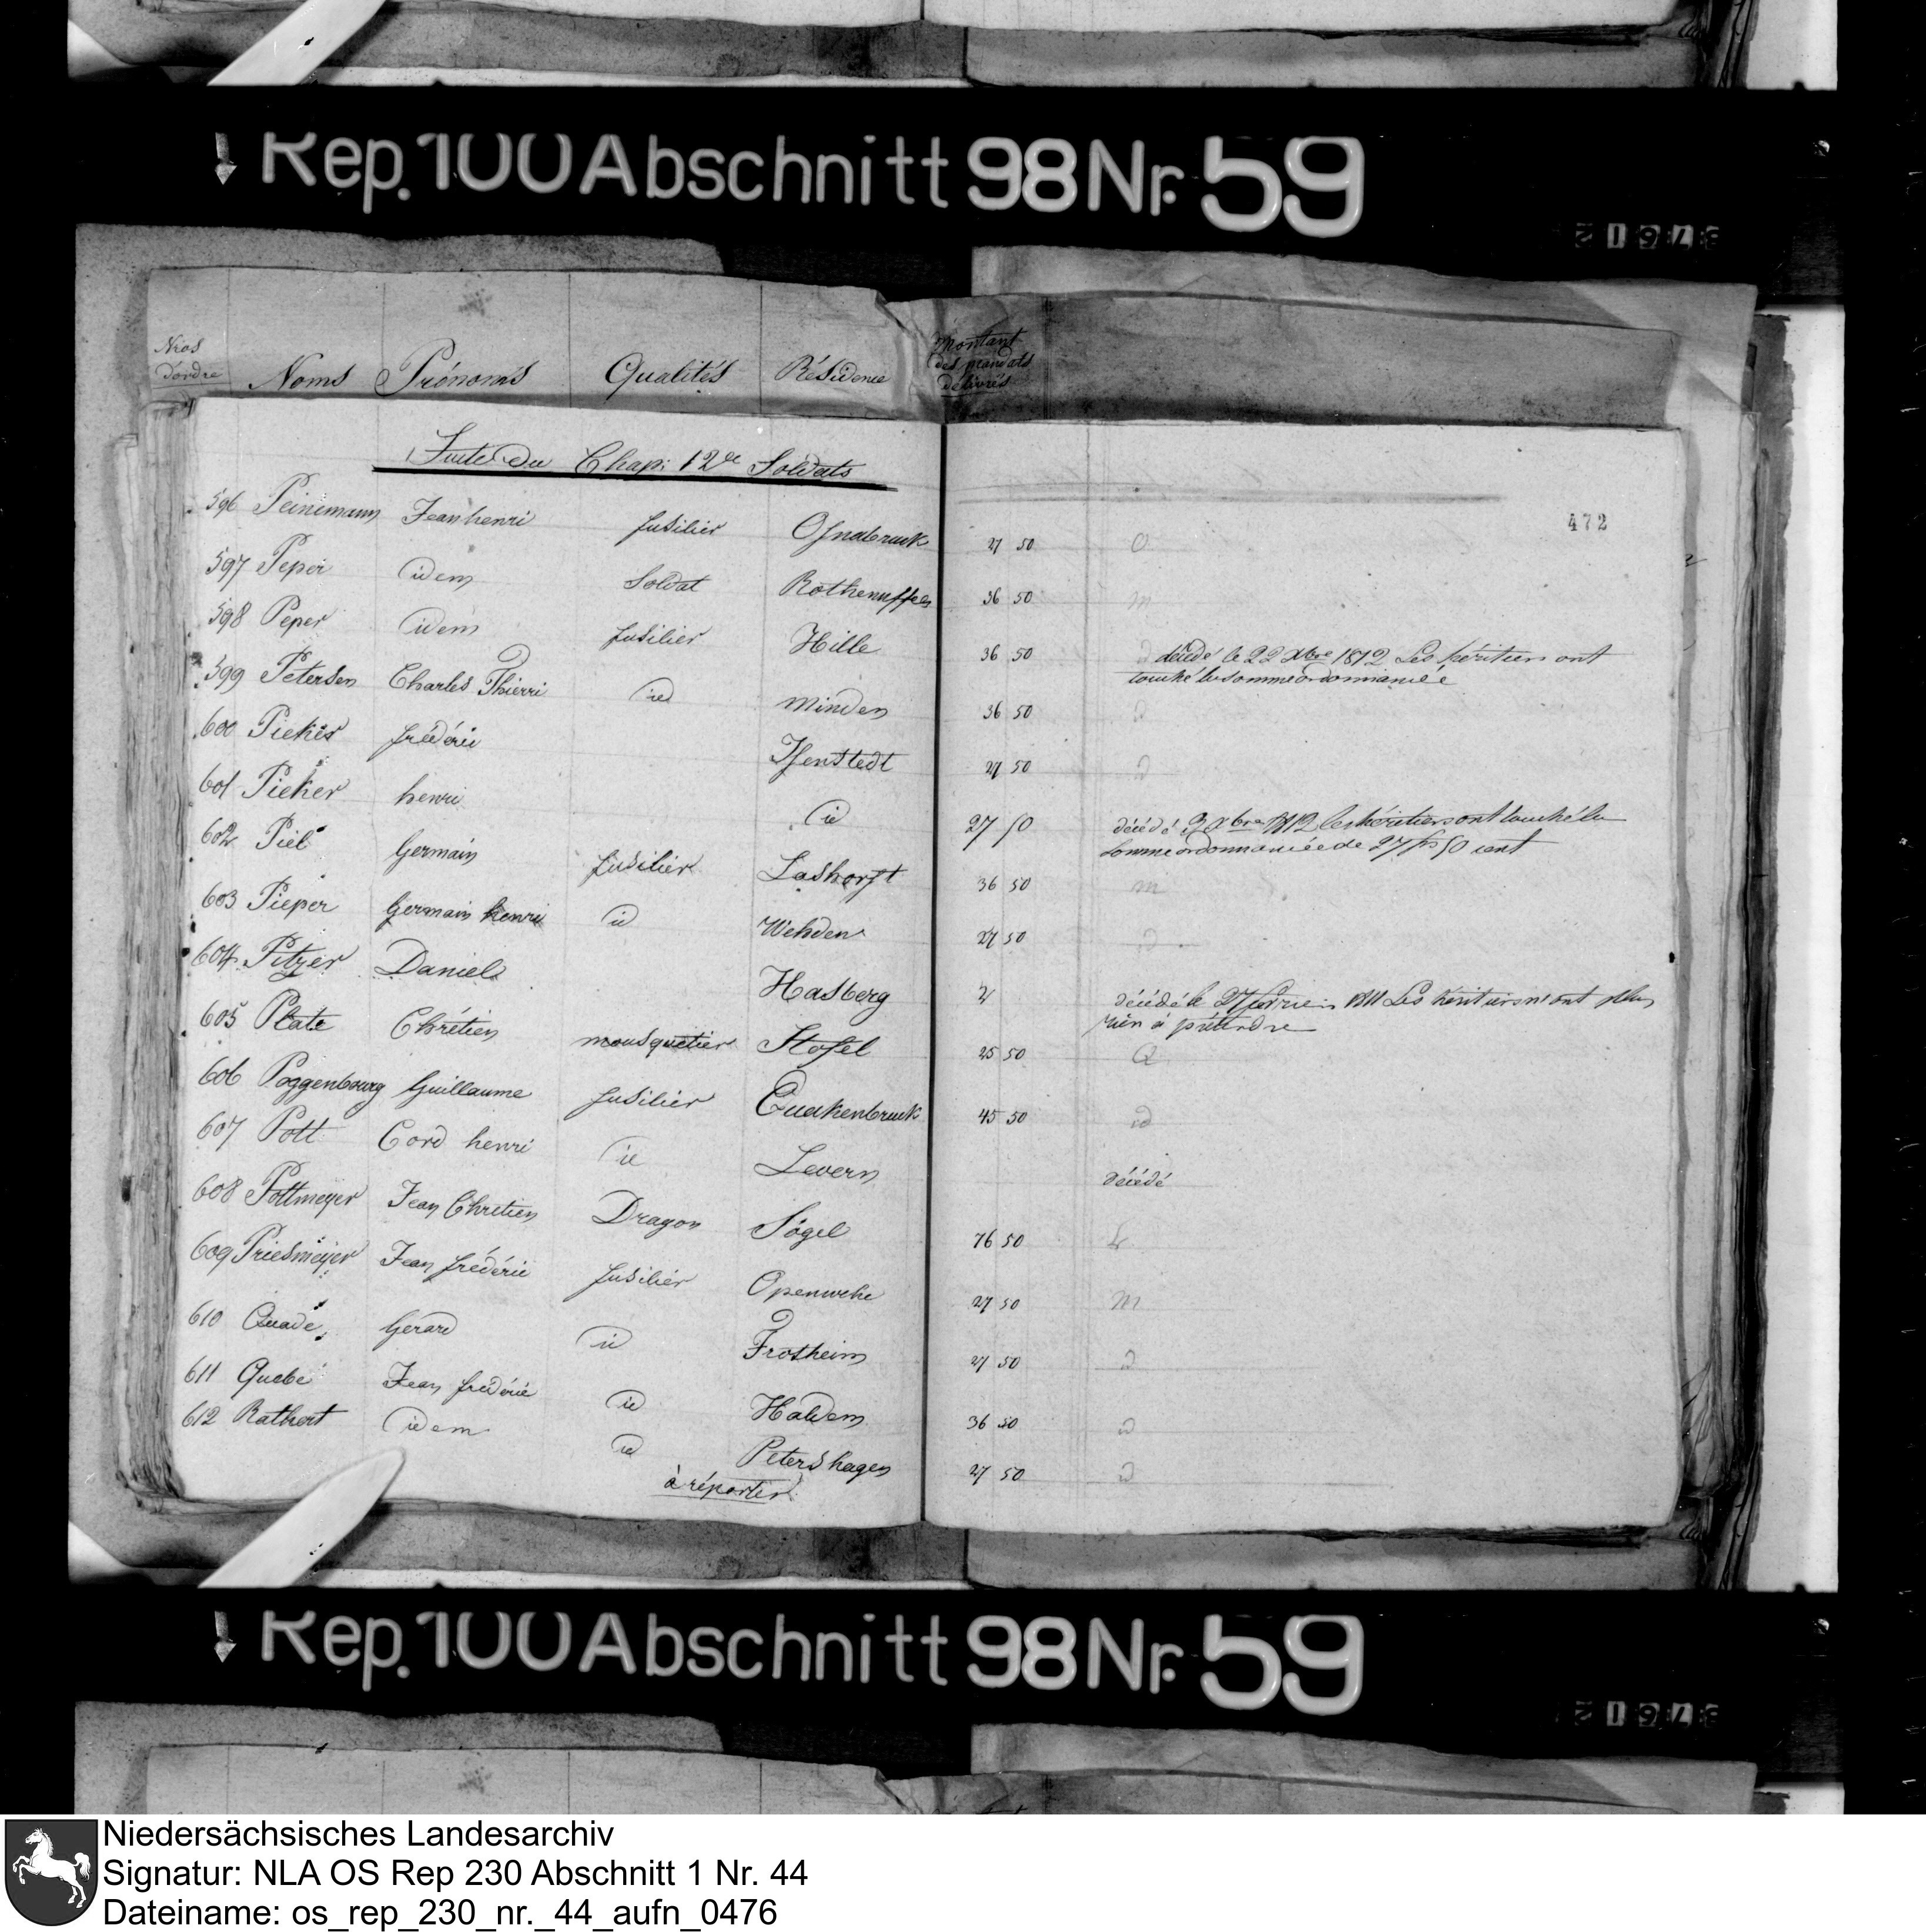 Rep. 100 Abschnitt 98 Nr. 59
Nros d'ordre Noms Prénoms Qualités Résidence Montant des mandats délivrés
Suite du Chap: 12de Soldats
472
596 Peinemann Jean henri fusilier Osnabruck 27 50 O
597 Peper idem Soldat Rothenuffen 36 50 m
598 Peper idem fusilier Hille 36 50 décédé le 22 Xbre 1812 Les héritiers ont
touché la somme ordonnancée
599 Petersen Charles Thierri id Minden 36 50
600 Pieker frédéric Isenstedt 27 50
601 Pieker henri id 27 50 décédé 3 Xbre 1812 les héritiers ont touché la
somme ordonnancée de 27 frs 50 cent
602 Piel Germain fusilier Lashorst 36 50 m
603 Pieper Germain henri id Wehden 27 50
604 Pitzer Daniel Hasberg 2 décédé le 27 février 1811 Les héritiers n'ont plus
rien à prétendre
605 Plate Chrétien mousquetier Stofel 25 50 Q
606 Poggenbourg Guillaume fusilier Quakenbruck 45 50 id
607 Pott Cord henri id Levern décédé
608 Pottmeyer Jean Chretien Dragon Sögel 76 50 L
609 Priesmeijer Jean frédéric fusilier Openwehe 27 50 m
610 Quade Gerard id Frotheim 27 50
611 Quebe Jean frédéric id Haldem 36 50
612 Rathert idem id Petershagen 27 50
à réporter
Rep. 100 Abschnitt 98 Nr. 59
Niedersächsisches Landesarchiv
Signatur: NLA OS Rep 230 Abschnitt 1 Nr. 44
Dateiname: os_rep_230_nr._44_aufn_0476